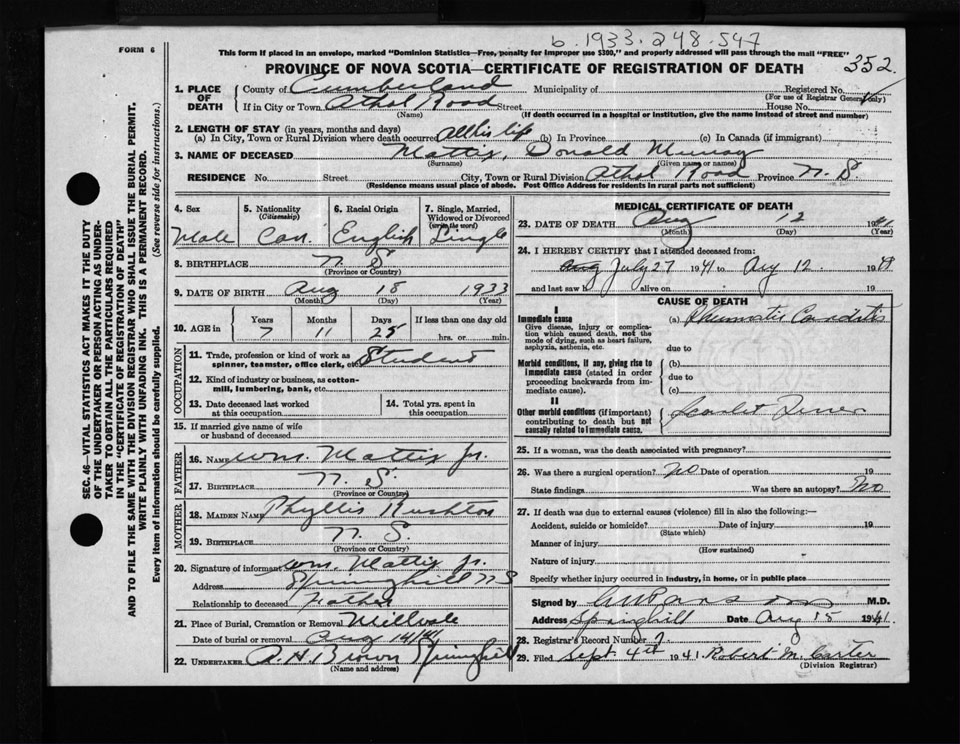 b. 1933. 248. 547
FORM 6
This form if placed in an envelope, marked "Dominion Statistics—Free, penalty for improper use $300," and properly addressed will pass through the mail "FREE"
PROVINCE OF NOVA SCOTIA—CERTIFICATE OF REGISTRATION OF DEATH
352.
1. PLACE OF DEATH
County of Cumberland Municipality of Registered No.
(For use of Registrar General only)
If in City or Town Athol Road Street House No.
(Name) (If death occurred in a hospital or institution, give the name instead of street and number)
2. LENGTH OF STAY (in years, months and days)
(a) In City, Town or Rural Division where death occurred All his life (b) In Province (c) In Canada (if immigrant)
3. NAME OF DECEASED Mattix, Donald Murray
(Surname) (Given name or names)
RESIDENCE No. Street City, Town or Rural Division Athol Road Province N. S.
(Residence means usual place of abode. Post Office Address for residents in rural parts not sufficient)
4. Sex
Male
5. Nationality (Citizenship)
Can.
6. Racial Origin
English
7. Single, Married, Widowed or Divorced (write the word)
Single
8. BIRTHPLACE N S
(Province or Country)
9. DATE OF BIRTH Aug 18 1933
(Month) (Day) (Year)
10. AGE in Years Months Days If less than one day old
7 11 25 hrs. or min.
OCCUPATION
11. Trade, profession or kind of work as spinner, teamster, office clerk, etc. Student
12. Kind of industry or business, as cotton-mill, lumbering, bank, etc.
13. Date deceased last worked at this occupation
14. Total yrs. spent in this occupation
15. If married give name of wife or husband of deceased
FATHER
16. NAME Wm. Mattix Jr.
17. BIRTHPLACE N. S.
(Province or Country)
MOTHER
18. MAIDEN NAME Phyllis Rushton
19. BIRTHPLACE N. S.
(Province or Country)
20. Signature of informant Wm. Mattix Jr.
Address Springhill N S
Relationship to deceased Father
21. Place of Burial, Cremation or Removal Millvale
Date of burial or removal Aug 14/41
22. UNDERTAKER A. H. Brown Springhill
(Name and address)
MEDICAL CERTIFICATE OF DEATH
23. DATE OF DEATH Aug 12 1941
(Month) (Day) (Year)
24. I HEREBY CERTIFY that I attended deceased from:
Aug July 27 1941 to Aug 12 1941
and last saw h alive on 19
CAUSE OF DEATH
I
Immediate cause
Give disease, injury or complication which caused death, not the mode of dying, such as heart failure, asphyxia, asthenia, etc.
(a) Rheumatic Carditis
due to
Morbid conditions, if any, giving rise to immediate cause (stated in order proceeding backwards from immediate cause).
(b)
due to
(c)
II
Other morbid conditions (if important) contributing to death but not causally related to immediate cause.
Scarlet Fever
25. If a woman, was the death associated with pregnancy?
26. Was there a surgical operation? No Date of operation 19
State findings Was there an autopsy? No
27. If death was due to external causes (violence) fill in also the following:—
Accident, suicide or homicide? Date of injury 19
(State which)
Manner of injury
(How sustained)
Nature of injury
Specify whether injury occurred in industry, in home, or in public place
Signed by M.D.
Address Springhill Date Aug 15 1941.
28. Registrar's Record Number 7
29. Filed Sept 4th 1941. Robert M. Carter
(Division Registrar)
SEC. 46—VITAL STATISTICS ACT MAKES IT THE DUTY
OF THE UNDERTAKER OR PERSON ACTING AS UNDER-
TAKER TO OBTAIN ALL THE PARTICULARS REQUIRED
IN THE "CERTIFICATE OF REGISTRATION OF DEATH"
AND TO FILE THE SAME WITH THE DIVISION REGISTRAR WHO SHALL ISSUE THE BURIAL PERMIT.
WRITE PLAINLY WITH UNFADING INK. THIS IS A PERMANENT RECORD.
Every item of Information should be carefully supplied. (See reverse side for instructions.)